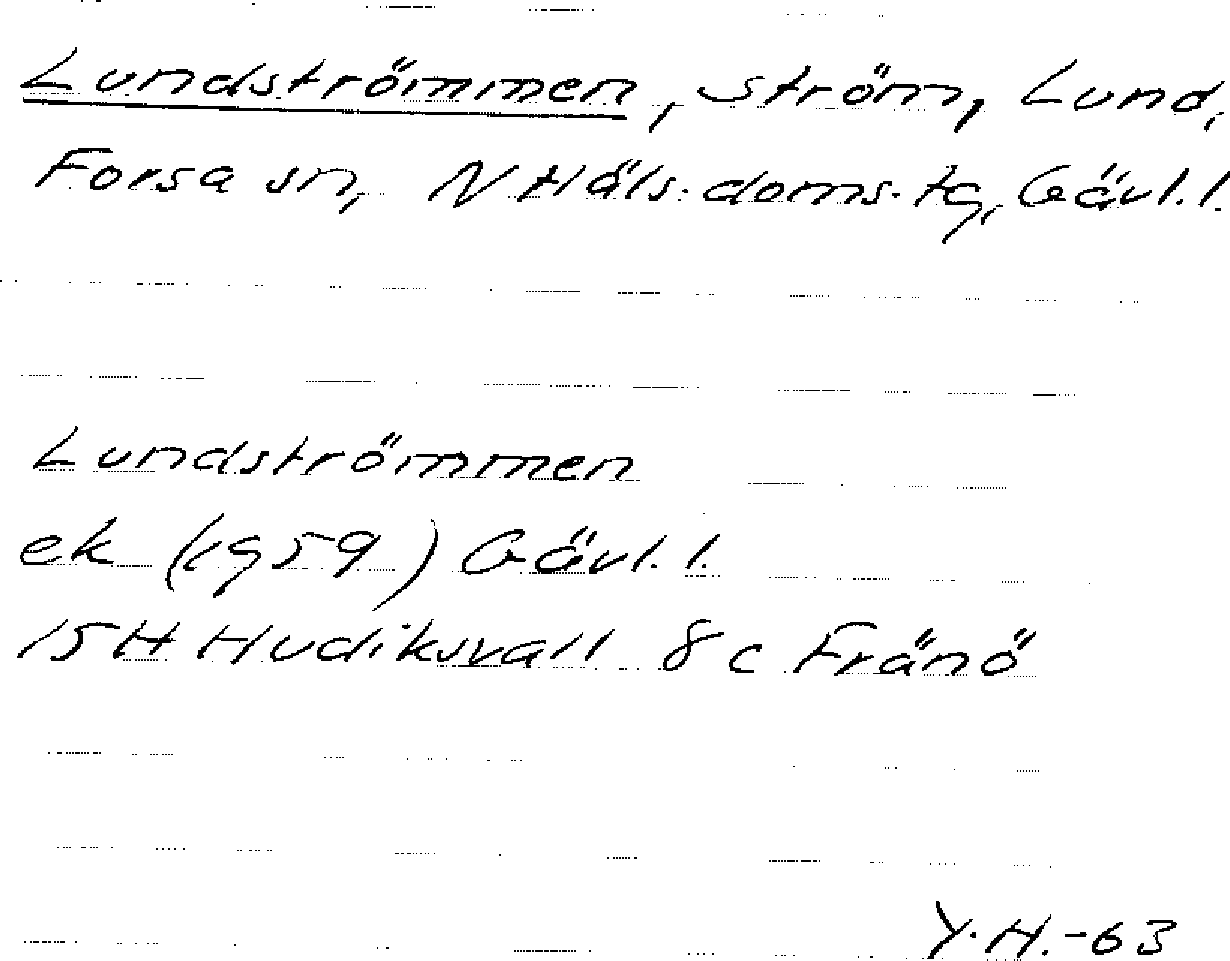 Lundströmmen, ström, Lund,
Forsa sn, N Häls. doms. tg, Gävl. l.
Lundströmmen
ek (1959) Gävl. l.
15H Hudiksvall 8c Fränö
Y.H.-63